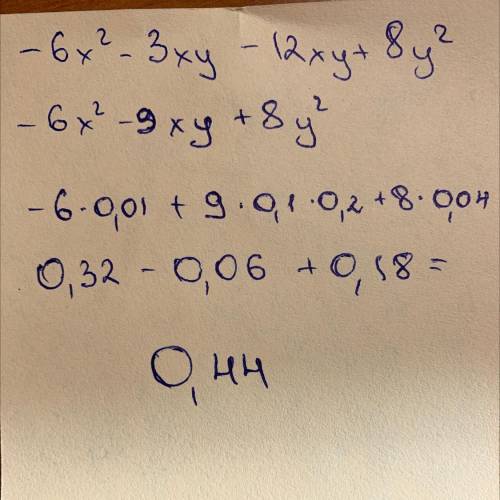 -6x² - 3xy - 12xy + 8y²
-6x² - 9xy + 8y²
-6·0,01 + 9·0,1·0,2 + 8·0,04
0,32 - 0,06 + 0,18 =
0,44